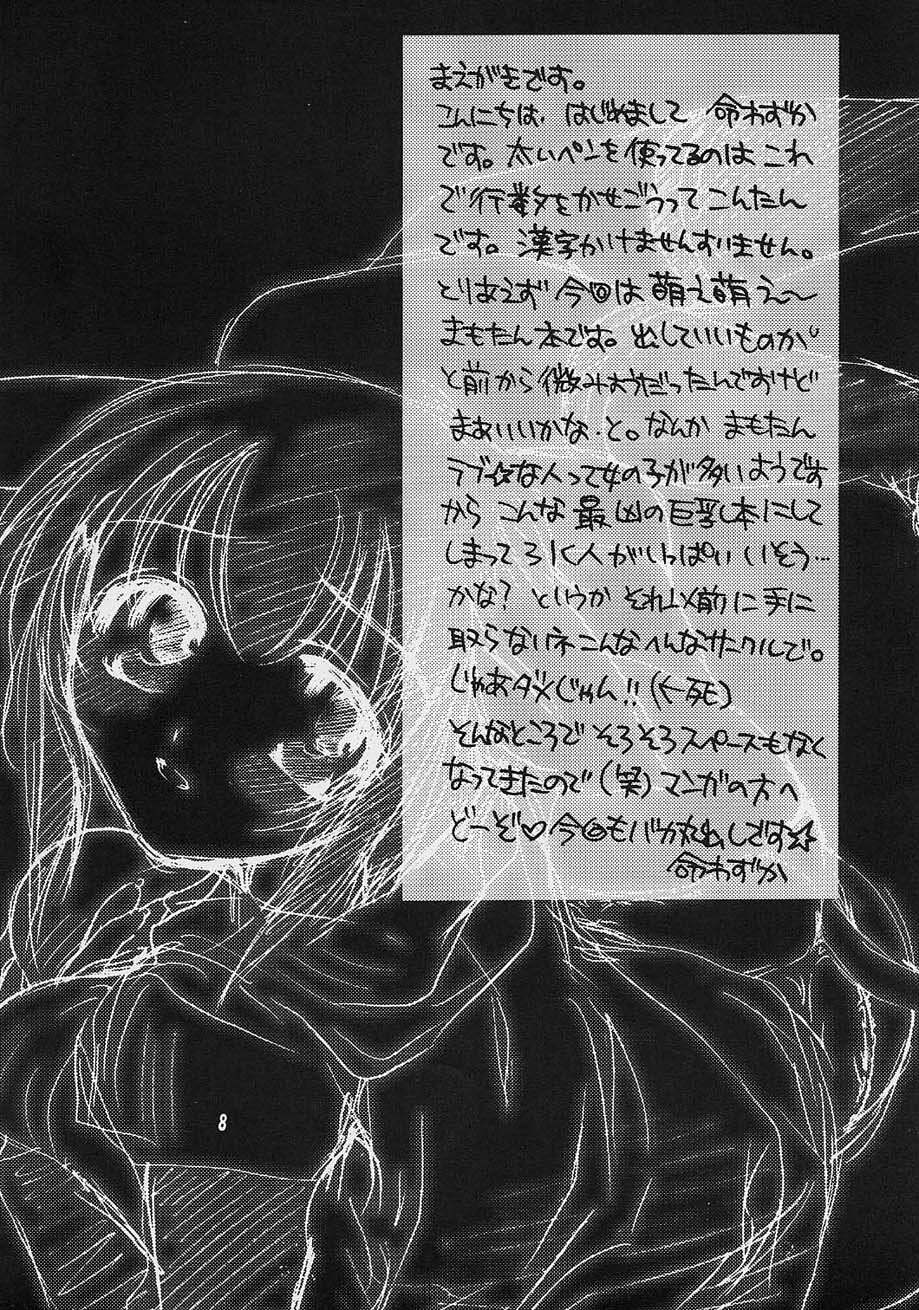 まえがきです。
こんにちは、はじめまして 命わずか
です。太いペンを使ってるのはこれ
で行数をかせごうってこんたん
です。漢字かけませんすいません。
とりあえず今回は萌え萌え〜
まもたん本です。出していいものか
と前から微みょうだったんですけど
まぁいいかな・と。なんか まもたん
ラブ☆な人って女の子が多いようです
から こんな 最凶の巨乳本にして
しまって ろく人がいっぱい いそう…
かな? というか それ以前に手に
取らないネこんなへんなサークルで。
じゃあダメじゃん!!(←死)
そんなところで そろそろスペースもなく
なってきたので(笑)マンガの方へ
どーぞ♡今回もバカ丸出しです☆
命わずか
8